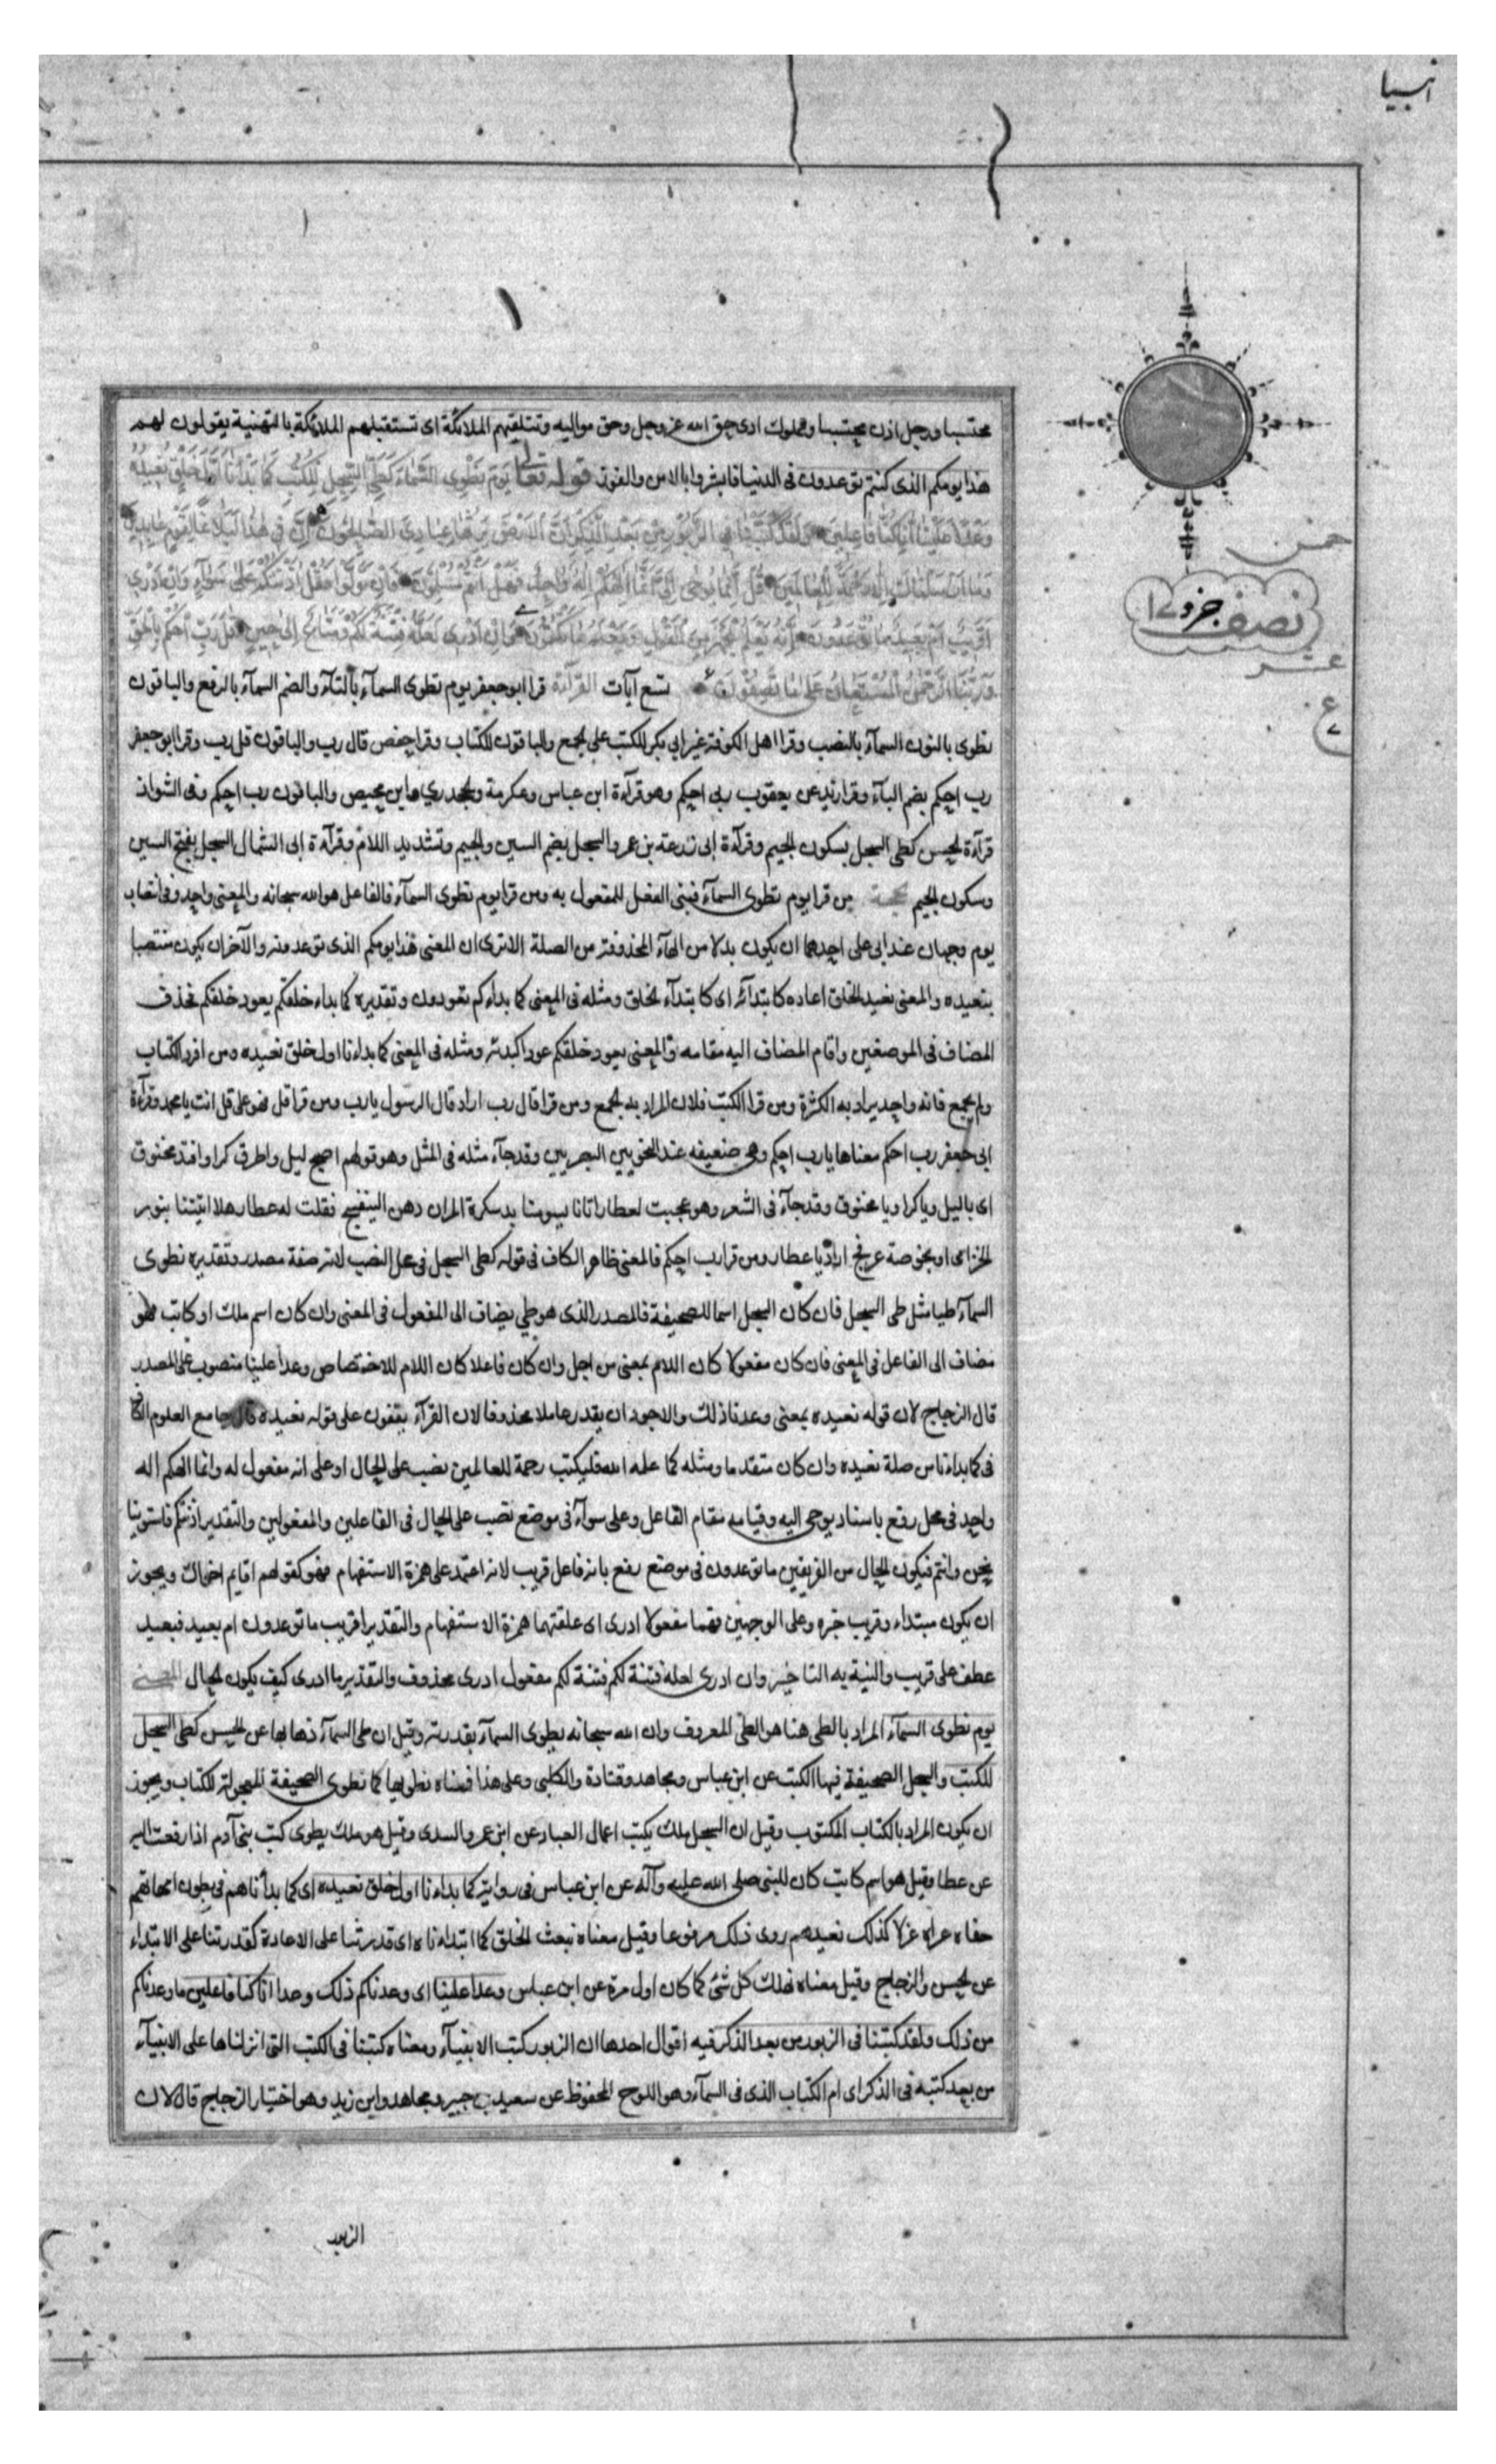 انبيا
محتسبا ورجل اذن محتسبا ومملوك ادى حق الله عز وجل وحق مواليه وتتلقيهم الملائكة اى تستقبلهم الملائكة بالتهنية يقولون لهم
هذا يومكم الذى كنتم توعدون فى الدنيا فابشروا بالامن والفوز قوله تعالى يَوْمَ نَطْوِى السَّمَاءَ كَطَىِّ السِّجِلِّ لِلْكُتُبِ كَمَا بَدَأْنَا اَوَّلَ خَلْقٍ نُعِيدُهُ
وَعْدًا عَلَيْنَا اِنَّا كُنَّا فَاعِلِينَ وَلَقَدْ كَتَبْنَا فِي الزَّبُورِ مِنْ بَعْدِ الذِّكْرِ اَنَّ الْاَرْضَ يَرِثُهَا عِبَادِيَ الصَّالِحُونَ اِنَّ فِي هٰذَا لَبَلَاغًا لِقَوْمٍ عَابِدِينَ
وَمَا اَرْسَلْنَاكَ اِلَّا رَحْمَةً لِلْعَالَمِينَ قُلْ اِنَّمَا يُوحٰى اِلَيَّ اَنَّمَا اِلٰهُكُمْ اِلٰهٌ وَاحِدٌ فَهَلْ اَنْتُمْ مُسْلِمُونَ فَاِنْ تَوَلَّوْا فَقُلْ اٰذَنْتُكُمْ عَلٰى سَوَآءٍ وَاِنْ اَدْرِي
اَقَرِيبٌ اَمْ بَعِيدٌ مَا تُوعَدُونَ اِنَّهُ يَعْلَمُ الْجَهْرَ مِنَ الْقَوْلِ وَيَعْلَمُ مَا تَكْتُمُونَ وَاِنْ اَدْرِى لَعَلَّهُ فِتْنَةٌ لَكُمْ وَمَتَاعٌ اِلٰى حِينٍ قٰلَ رَبِّ احْكُمْ بِالْحَقِّ
وَرَبُّنَا الرَّحْمٰنُ الْمُسْتَعَانُ عَلٰى مَا تَصِفُونَ تسع آيات القرآءة قرا ابو جعفر يوم تطوى السمآء بالتآء والضم السمآء بالرفع والباقون
نطوى بالنون السمآء بالنصب وقرا اهل الكوفة غير ابي بكر للكتب على الجمع والباقون للكتاب وقرا حفص قال رب والباقون قل رب وقرا ابو جعفر
رب احكم بضم البآء وقرا زيد عن يعقوب ربى احكم وهو قرآءة ابن عباس وعكرمة والجحدري وابن محيصن والباقون رب احكم وفى الشواذ
قرآءة الحسن كطى السجل بسكون الجيم وقرآءة ابى زرعة بن عمرو السجل بضم السين والجيم وتشديد اللام وقرآءة ابى السمال السجل بفتح السين
وسكون الجيم من قرا يوم تطوى السمآء فبنى الفعل للمفعول به ومن قرا يوم نطوى السمآء فالفاعل هو الله سبحانه والمعنى واحد وفى انتصاب
يوم وجهان عند ابى على احدهما ان يكون بدلا من الهآء المحذوفة من الصلة الا ترى ان المعنى هذا يومكم الذى توعدونه والآخر ان يكون منتصبا
بنعيده والمعنى نعيد الخلق اعاده كابتدآئه اى كابتدآء الخلق ومثله فى المعنى كما بدأكم تعودون وتقديره كما بداء خلقكم يعود خلقكم فحذف
المضاف فى الموضعين واقام المضاف اليه مقامه والمعنى يعود خلقكم عودا كبدئه ومثله فى المعنى كما بداءنا اول خلق نعيده ومن افرد الكتاب
ولم يجمع فانه واحد يراد به الكثرة ومن قرا الكتب فلان المراد به الجمع ومن قرا قال رب اراد قال الرسول يا رب ومن قرا قل فهو على قل انت يا محمد وقرآءة
ابى جعفر رب احكم معناها يا رب احكم وهى ضعيفه عند النحويين البصريين وقد جآء مثله فى المثل وهو قولهم اصبح ليل واطرق كرا وافتد مخنوق
اى يا ليل ويا كرا ويا مخنوق وقد جآء فى الشعر وهو عجبت لعطار اتانا يسومنا بدسكرة المران دهن البنفسج فقلت له عطار هلا اتيتنا بنور
الخزامى او بخوصة عرفج اراد يا عطار ومن قرا رب احكم فالمعنى ظاهر الكاف فى قوله كطى السجل فى محل النصب لانه صفة مصدر وتقديره نطوى
السمآء طيا مثل طى السجل فان كان السجل اسما للصحيفة فالمصدر الذى هو طي يضاف الى المفعول فى المعنى وان كان اسم ملك او كاتب فهو
مضاف الى الفاعل فى المعنى فان كان مفعولا كان اللام بمعنى من اجل وان كان فاعلا كان اللام للاختصاص وعدا علينا منصوب على المصدر
قال الزجاج لان قوله نعيده بمعنى وعدنا ذلك والاجود ان يقدر عاملا محذوفا لان القرآء يقفون على قوله نعيده قال جامع العلوم الكاف
فى كما بداءنا من صلة نعيده وان كان متقدما ومثله كما علمه الله فليكتب رحمة للعالمين نصب على الحال او على انه مفعول له وانما الهكم اله
واحد فى محل رفع باسناد يوحى اليه وقيامه مقام الفاعل وعلى سوآء فى موضع نصب على الحال فى الفاعلين والمفعولين والتقدير اذنتكم فاستوينا
نحن وانتم فيكون الحال من الفريقين ما توعدون فى موضع رفع بانه فاعل قريب لانه اعتمد على همزة الاستفهام فهو كقولهم اقايم اخواك ويجوز
ان يكون مبتداء وقريب خبره وعلى الوجهين فهما مفعولا ادرى اى علقتهما همزة الاستفهام والتقدير اقريب ما توعدون ام بعيد فبعيد
عطف على قريب والنية به التاخير وان ادرى لعله فتنة لكم فتنة لكم مفعول ادرى محذوف والتقدير ما ادرى كيف يكون الحال المعنى
يوم نطوى السمآء المراد بالطى هنا هو الطى المعروف وان الله سبحانه يطوى السمآء بقدرته وقيل ان طى السمآء ذهابها عن الحسن كطى السجل
للكتب والسجل الصحيفة فيها الكتب عن ابن عباس ومجاهد وقتادة والكلبى وعلى هذا فمعناه نطويها كما نطوى الصحيفة المجعولة للكتاب ويجوز
ان يكون المراد بالكتاب المكتوب وقيل ان السجل ملك يكتب اعمال العباد عن ابن عمر والسدى وقيل هو ملك يطوى كتب بنى آدم اذا رفعت اليه
عن عطا وقيل هو اسم كاتب كان للنبى صلى الله عليه وآله عن ابن عباس فى رواية كما بداءنا اول خلق نعيده اى كما بدأناهم فى بطون امهاتهم
حفاه عراه غزلا كذلك نعيدهم روى ذلك مرفوعا وقيل معناه نبعث الخلق كما ابتداءناه اى قدرتنا على الاعادة كقدرتنا على الابتداء
عن الحسن والزجاج وقيل معناه نهلك كل شئ كما كان اول مرة عن ابن عباس وعدا علينا اى وعدناكم ذلك وعدا انا كنا فاعلين ما وعدناكم
من ذلك ولقد كتبنا فى الزبور من بعد الذكر فيه اقوال احدها ان الزبور كتب الانبيآء ومعناه كتبنا فى الكتب التى انزلناها على الانبيآء
من بعد كتبه فى الذكر اى ام الكتاب الذى فى السمآء وهو اللوح المحفوظ عن سعيد بن جبير ومجاهد وابن زيد وهو اختيار الزجاج قال لان
الزبور
نصف جزو ١٧
عشر
ع